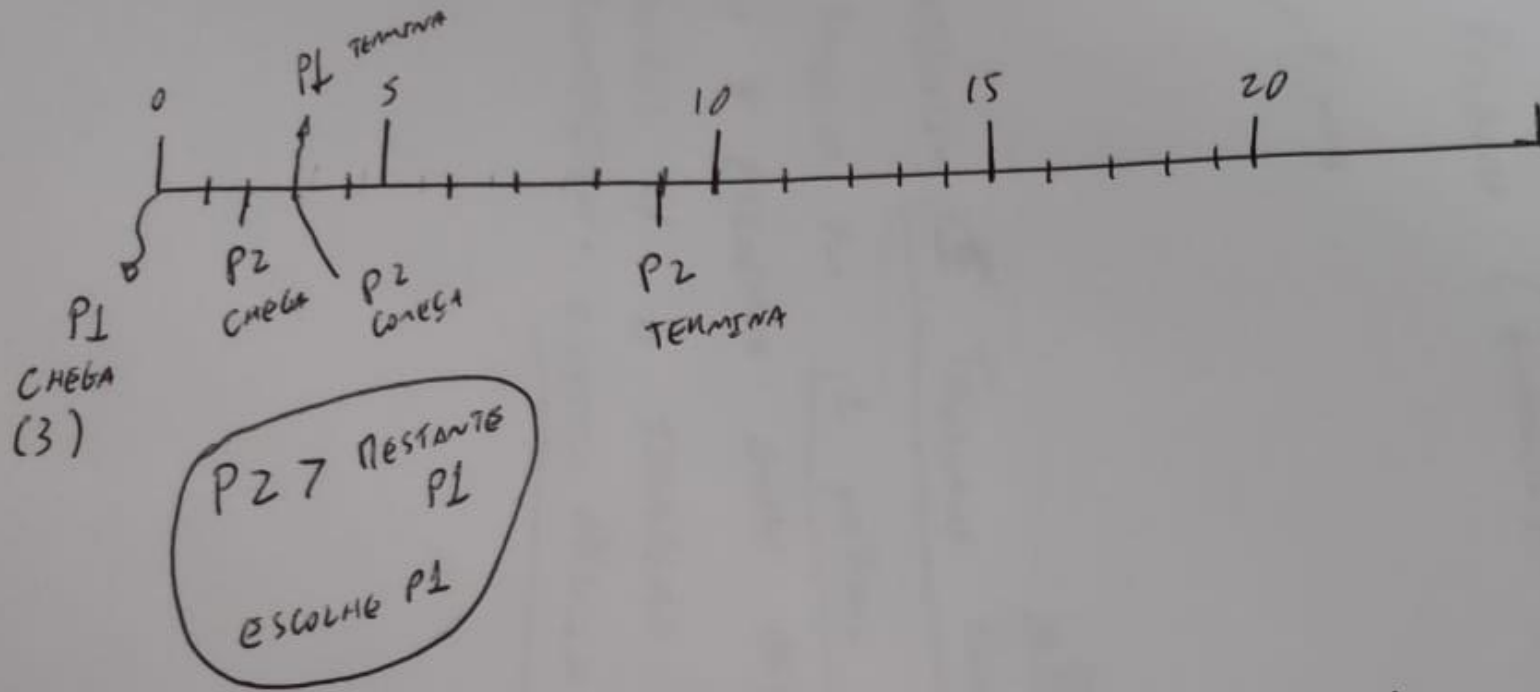 P1 TERMINA
0 5 10 15 20
P1
CHEGA
(3)
P2
CHEGA
P2
COMEÇA
P2
TERMINA
P2 > RESTANTE
P1
ESCOLHE P1